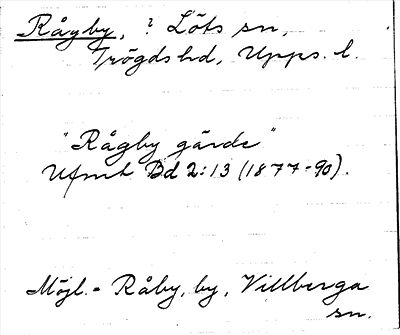 Rågby, ? Löts sn,
Trögds hd, Upps. l.
"Rågby gärde"
Ufmt Bd 2:13 (1877-90).
Möjl. = Råby, by, Villberga
sn.